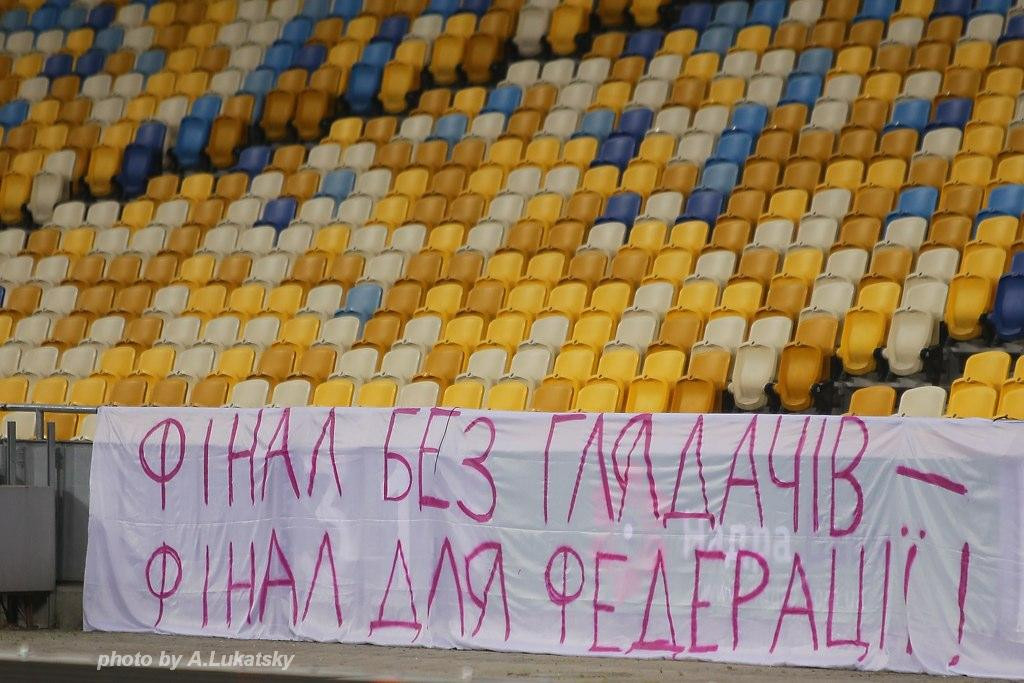 ФІНАЛ БЕЗ ГЛЯДАЧІВ –
ФІНАЛ ДЛЯ ФЕДЕРАЦІЇ!
photo by A.Lukatsky